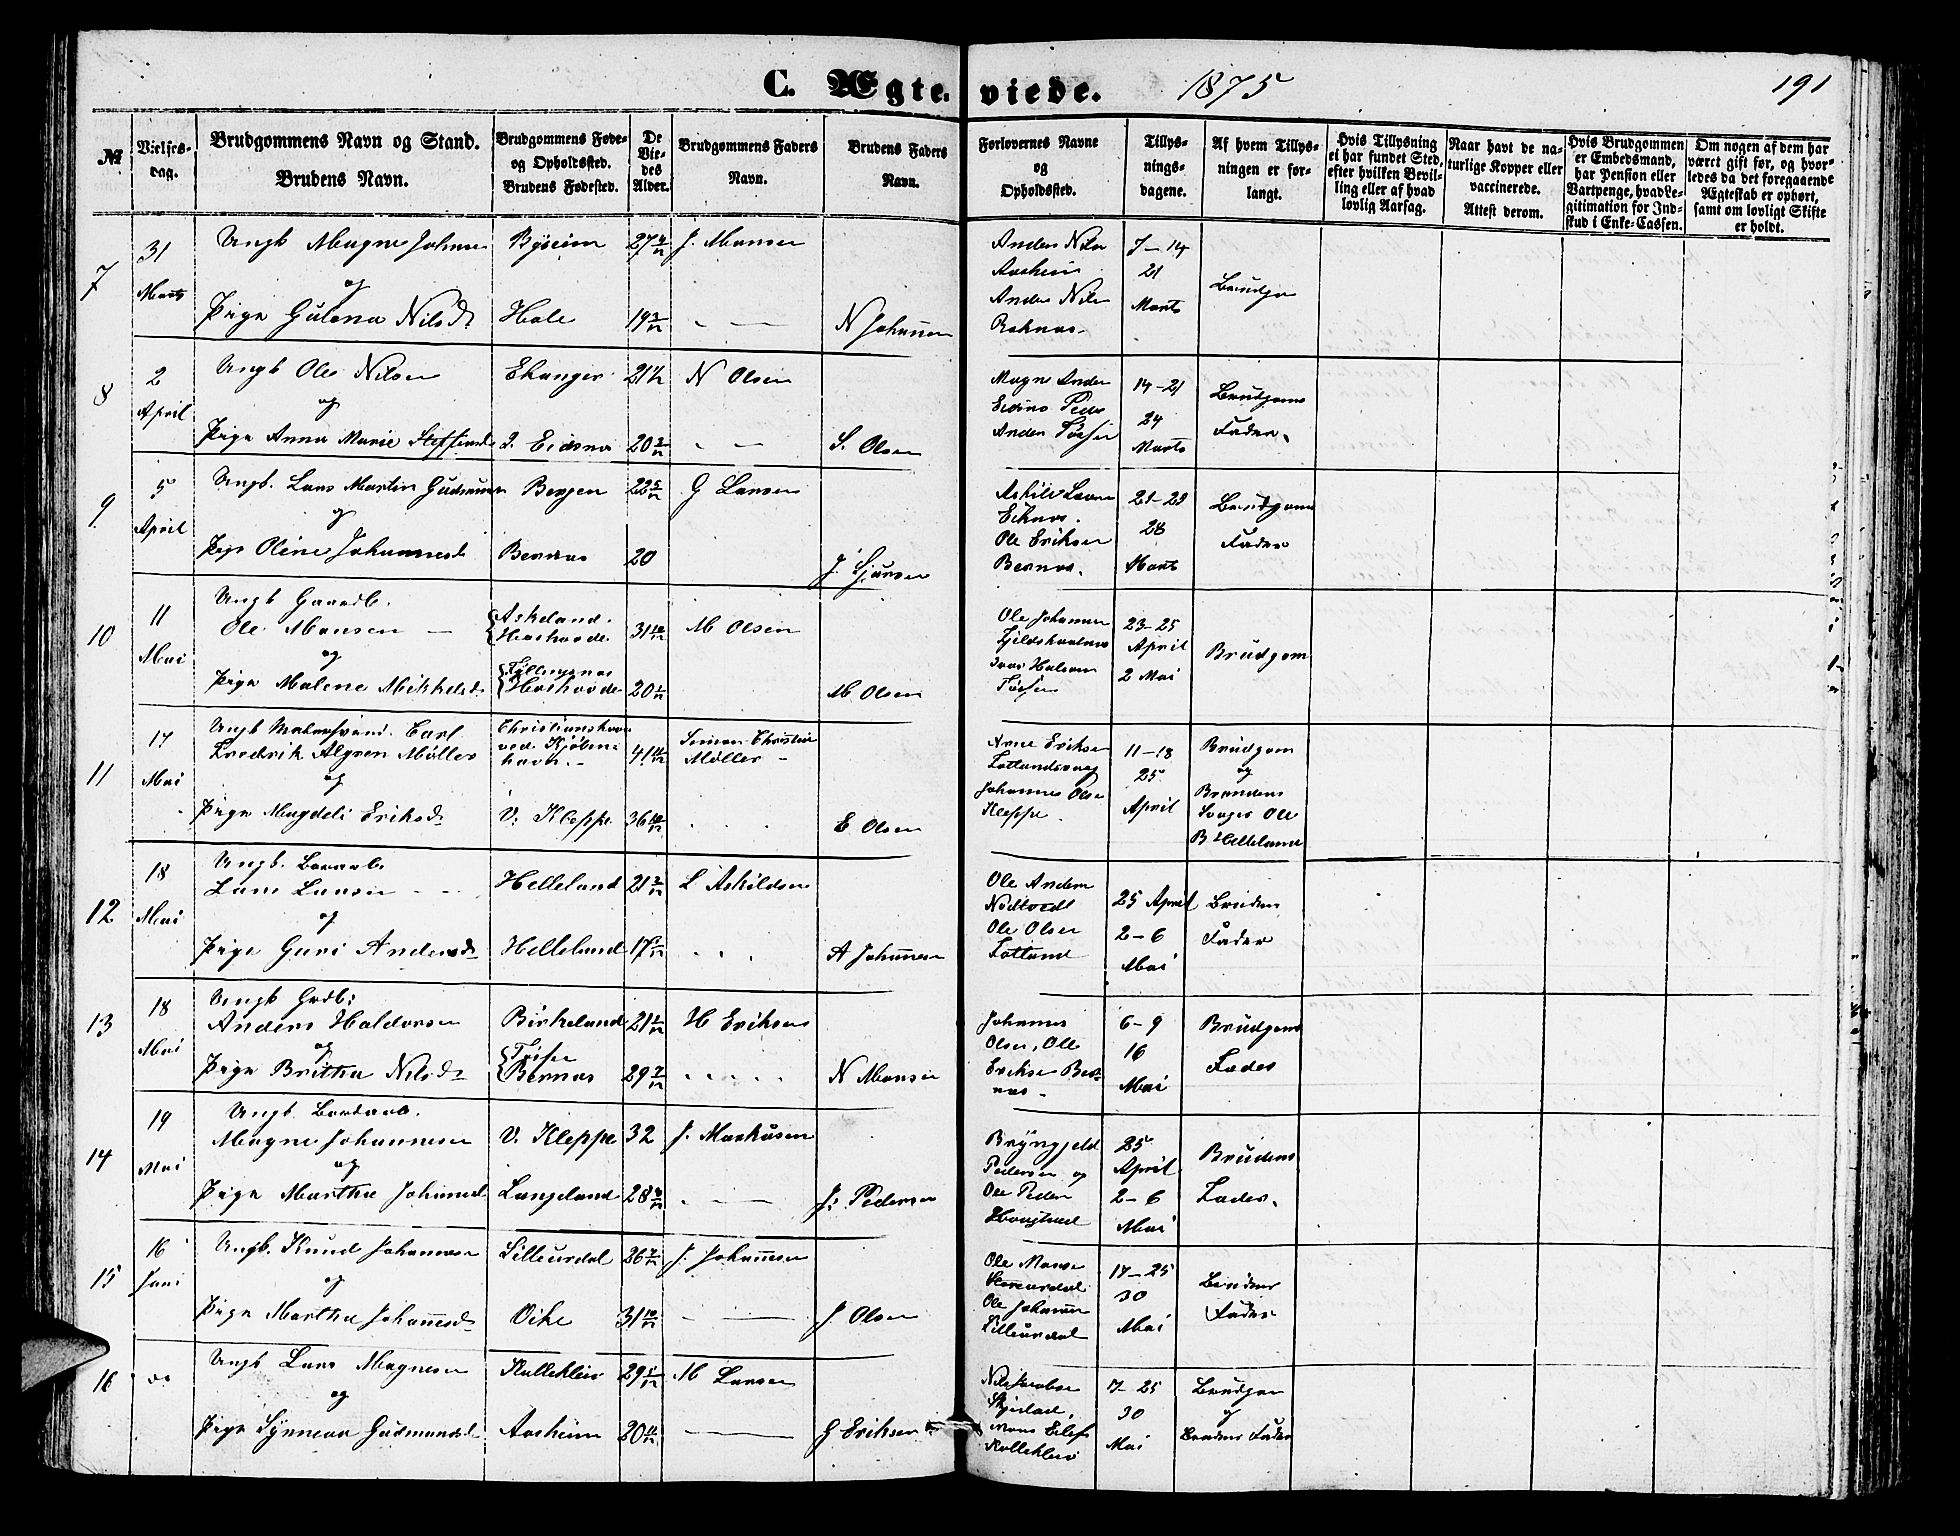 C. Ægteviede. 1875 191
№
Vielses-
dag.
Brudgommens Navn og Stand.
Brudens Navn.
Brudgommens Føde-
og Opholdssted.
Brudens Fødested.
De
Vie-
des
Alder.
Brudgommens Faders
Navn.
Brudens Faders
Navn.
Forlovernes Navne
og
Opholdssted.
Tillys-
nings-
dagene.
Af hvem Tillys-
ningen er for-
langt.
Hvis Tillysning
ei har fundet Sted,
efter hvilken Bevil-
ling eller af hvad
lovlig Aarsag.
Naar havt de na-
turlige Kopper eller
vaccinerede.
Attest derom.
Hvis Brudgommen
er Embedsmand,
har Pension eller
Vartpenge, hvad Le-
gitimation for Ind-
skud i Enke-Cassen.
Om nogen af dem har
været gift før, og hvor-
ledes da det foregaaende
Ægteskab er ophørt,
samt om lovligt Skifte
er holdt.
7
31
Marts
Ungk Magne Johnse
og
Pige Gulena Nilsd
Byseim
Hole
27
19
J. Monsen
N Johannen
Anders Nils
Aasheim
Anders Nils
Roknas.
7-14
21
Marts
Brudgo
8
2
April
Ungk Ole Nilsen
og
Pige Anna Marie Steffensd
Ekanger
I. Eidsnes
21½
20
N Olsen
S. Olsen
Magne Anders
Eidsno Peder
Anders
14-21
24
Marts
Brudgoms
Fader.
9
5
April
Ungk. Lars Martin Gudmun
og
Pige Oline Johannesd
Bergen
Bernas
22
20
G Larsen
J. Sjursen
Askild Larse
Eiknas.
Ole Eriksen
Bernas.
21-23
28
Marts
Brudgoms
Fader
10
11
Mai
Ungk Gaardb.
Ole Monsen
og
Pige Malene Mikkelsd
Askeland.
20
31
M Olsen
M Olsen
Ole Johannen
23-25
April
2 Mai
Brudgom
11
17
Mai
Ungk Carl
Fredrik Algren Møller
og
Pige Magdeli Eriksd
Christianshavn
ved Kjøben
havn.
V. Kleppe
41
36
Simon Christia
Møller
E Olsen
Arne Eriksen
Johannes Olse
Kleppe.
11-18
25
April
Brudgom
og
Brudens
Svoger Ole
B Helleland
12
18
Mai
Ungk.
Lars Larsen
og
Pige Guri Andersd
Helleland
Helleland
21
17
L Askildsen
A Johannesen
Ole Anders
Nedtvedt
Ole Olsen
Lotland
25 April
2-6
Mai
Brudens
Fader
13
18
Mai
Ungk Grdb.
Anders Haldorsen
og
Pige Britha Nilsd
Birkeland
Bernas
21
29
H Eriksen
N Monsen
Johannes
Olsen, Ole
Eriksen Ber-
nas.
6-9
16
Mai
Brudgoms
Fader
14
19
Mai
Ungk.
Magne Johannesen
og
Pige Martha Johannesd
V. Kleppe
Langeland
32
28
J. Markusen
J. Pedersen
Bryngjeld
Pedersen og
Ole Peder
25
April
2-6
Mai
Brudens
Fader.
15
16
Juni
Ungk. Knud Johannesen
og
Pige Martha Johannesd
Lilleurdal
Vike
26
31
J. Johannesen
J Olsen
Ole Monse
Storeurdal
Ole Johannen
Lilleurdal
17-25
30
Mai
Brudens
Fader
16
Ungk Lars Magnesen
og
Pige Synneva Gudmundsd
Kallekleiv
Aasheim
29
20
M Larsen
G Eriksen
Nils Jacobse
Mons Eilefs
Kallekleiv
17-25
30
Mai
Brudgom
og
Brudens Fader